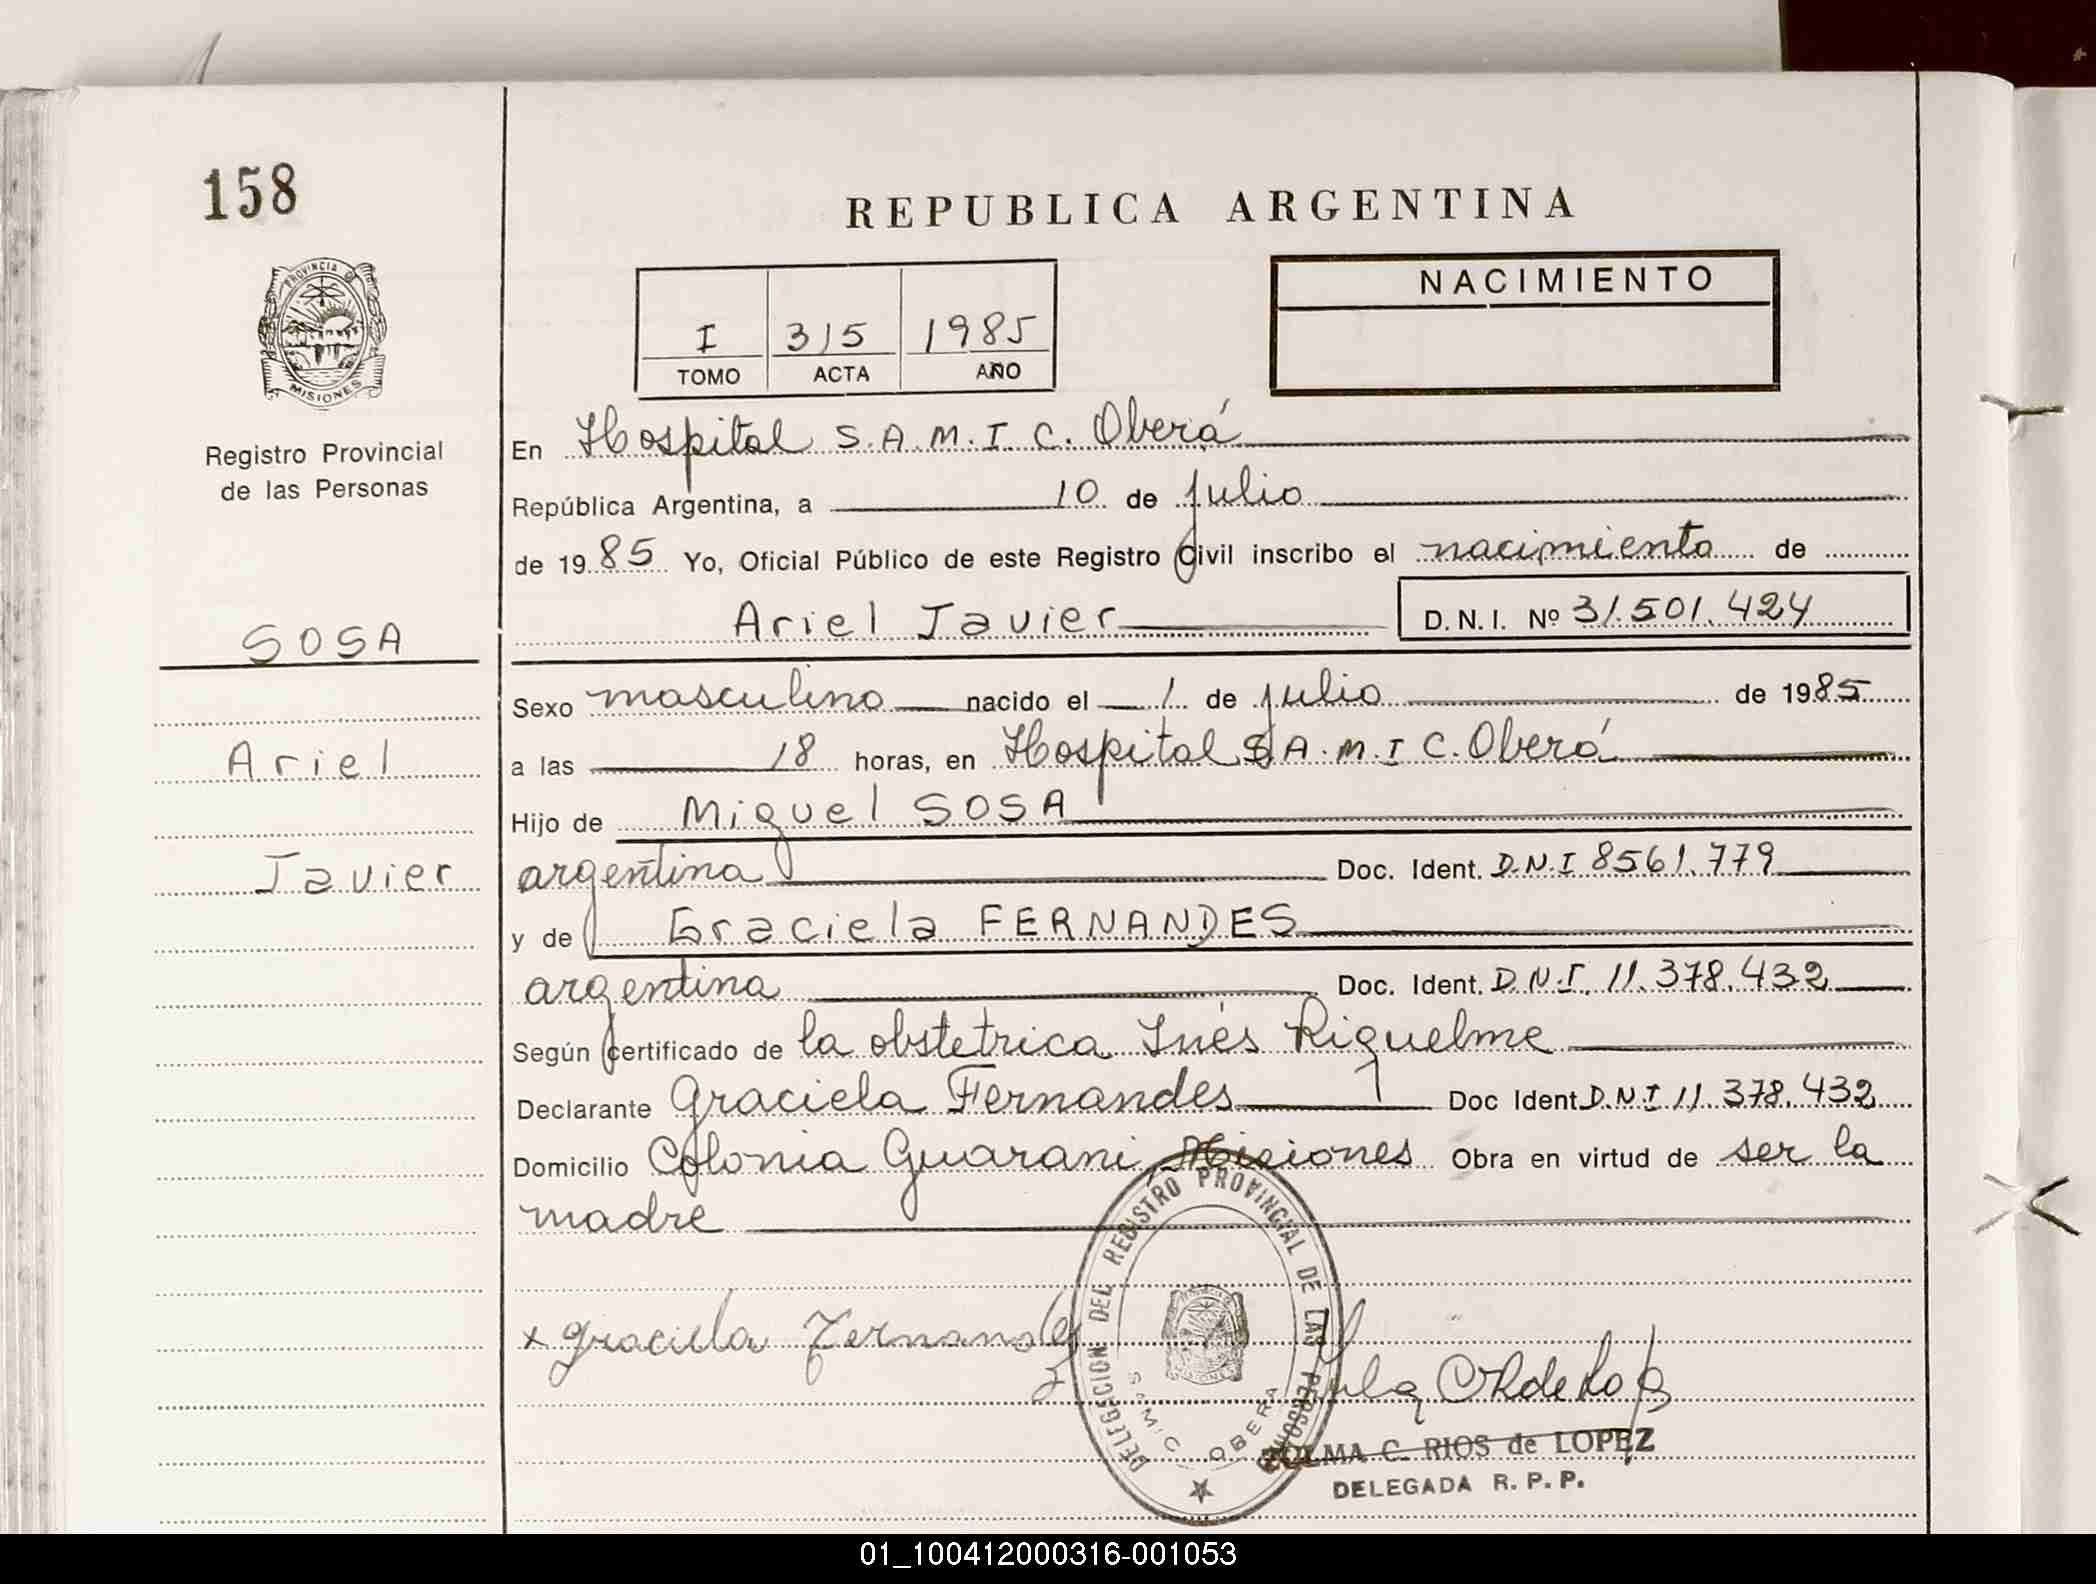 158
REPUBLICA ARGENTINA
PROVINCIA DE
MISIONES
NACIMIENTO
I 315 1985
TOMO ACTA AÑO
Registro Provincial
de las Personas
En Hospital S.A.M.I.C. Oberá
República Argentina, a 10 de julio
de 1985 Yo, Oficial Público de este Registro Civil inscribo el nacimiento de
Ariel Javier D.N.I. Nº 31.501.424
SOSA
Sexo masculino nacido el 1 de julio de 1985
Ariel
a las 18 horas, en Hospital S.A.M.I C. Oberá
Hijo de Miguel SOSA
Javier
argentina Doc. Ident. D.N.I 8561.779
y de Graciela FERNANDES
argentina Doc. Ident. D.N.I. 11.378.432
Según certificado de la obstetrica Inés Riquelme
Declarante Graciela Fernandes Doc Ident D.N.I 11 378.432
Domicilio Colonia Guarani, Misiones Obra en virtud de ser la
madre
DELEGACION DEL REGISTRO PROVINCIAL DE LAS PERSONAS
MISIONES
SAMIC OBERA
x Graciela Fernandez
C. RIOS de LOPEZ
DELEGADA R. P. P.
01_100412000316-001053